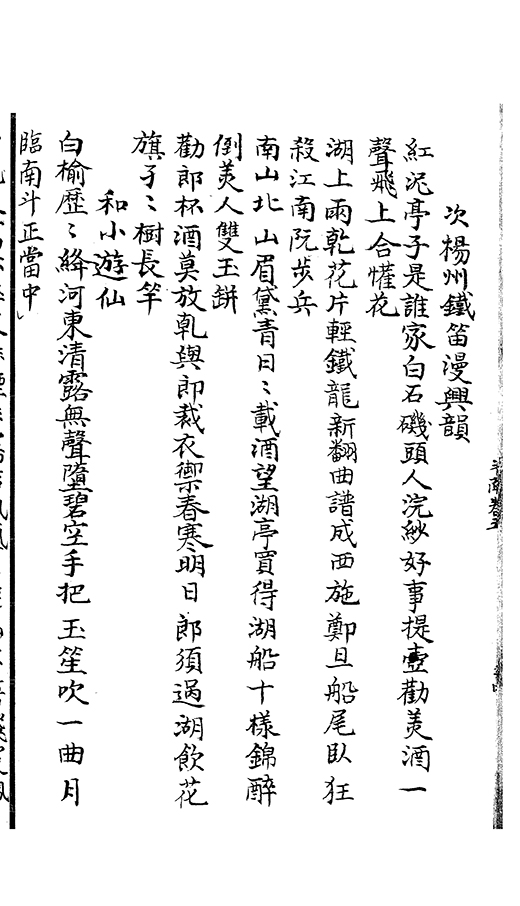 次楊州鐵笛漫興韻
紅泥亭子是誰家白石磯頭人浣紗好事提壺勸美酒一
聲飛上合懽花
湖上雨乾花片輕鐵龍新翻曲譜成西施鄭旦船尾臥狂
殺江南阮步兵
南山北山眉黛青日〻載酒望湖亭賣得湖船十樣錦醉
倒美人雙玉缾
勸郎杯酒莫放乾與郎裁衣禦春寒明日郎須過湖飲花
旗子〻樹長竿
和小遊仙
白榆歷〻絳河東清露無聲墮碧空手把玉笙吹一曲月
臨南斗正當中